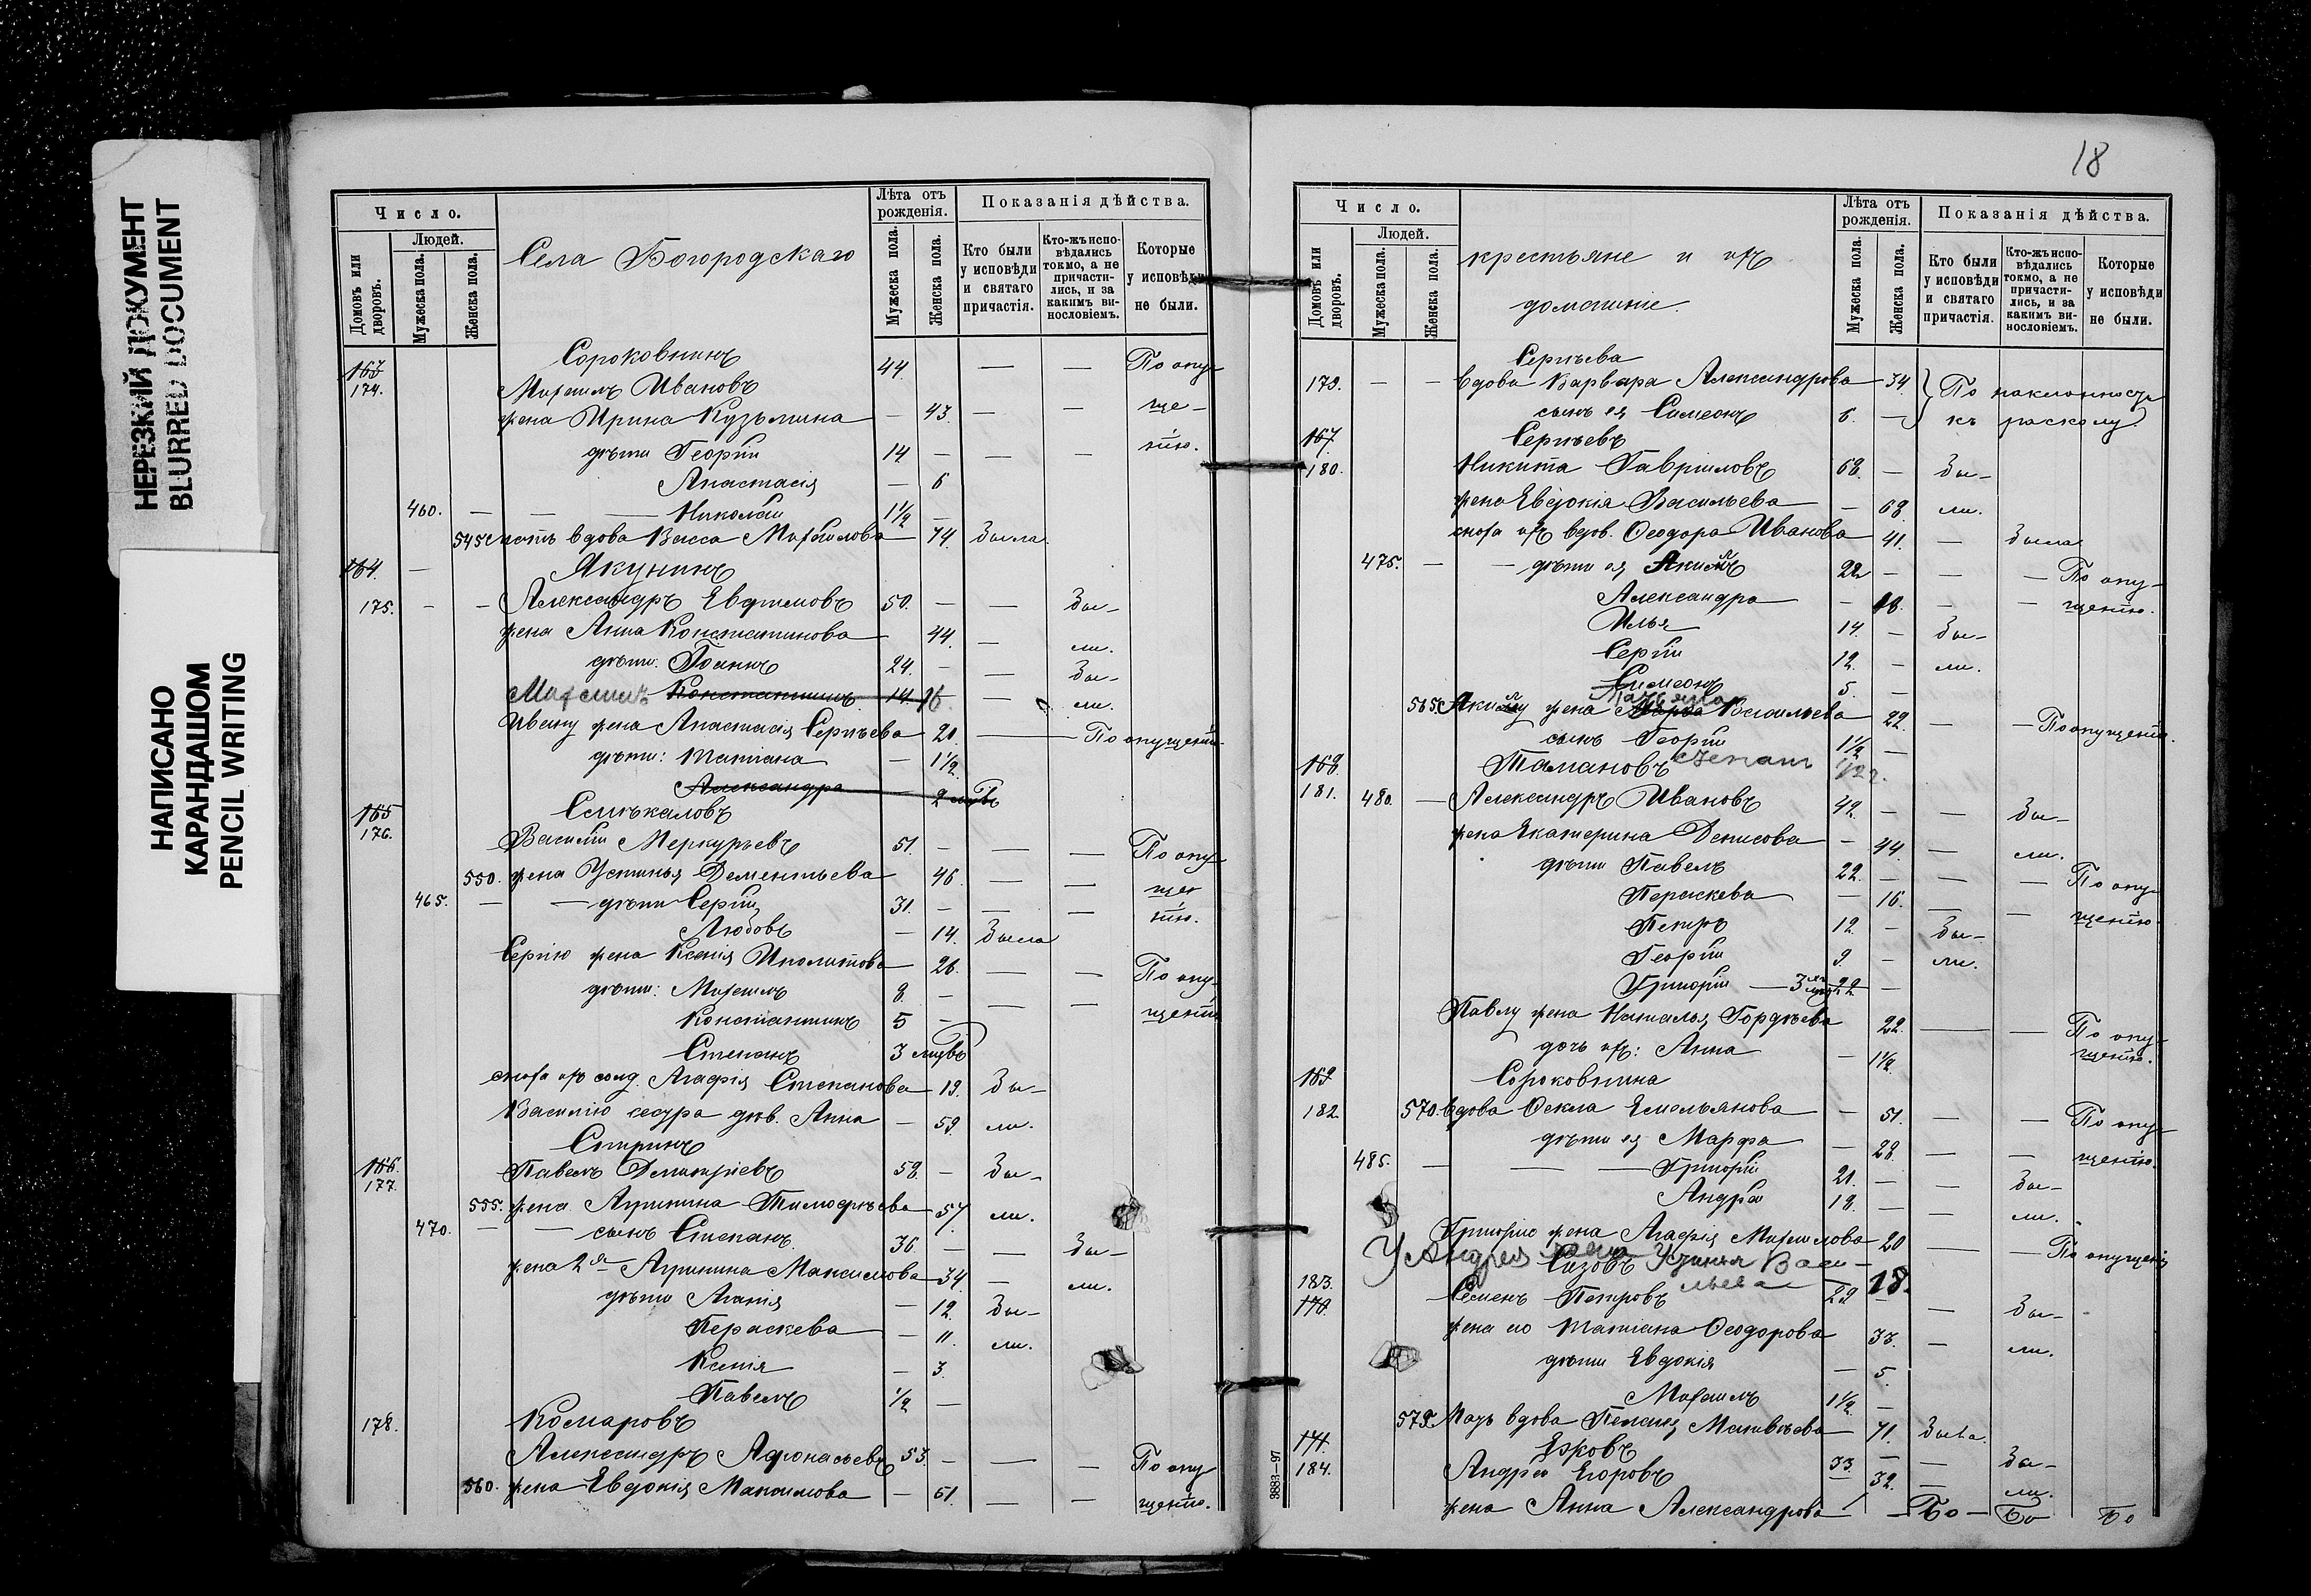 НЕРЕЗКИЙ ДОКУМЕНТ
BLURRED DOCUMENT
НАПИСАНО
КАРАНДАШОМ
PENCIL WRITING
Число.
Людей.
Домовъ или дворовъ.
Мужеска пола.
Женска пола.
Села Богородскаго
Лѣта отъ рожденія.
Мужеска пола.
Женска пола.
Показанія дѣйства.
Кто были у исповѣди и святаго причастія.
Кто-жъ исповѣдались токмо, а не причастились, и за какимъ винословіемъ.
Которые у исповѣди не были.
Сороковнинъ
163 174. Михаилъ Ивановъ 44. — — По опу-
жена Ирина Кузьмина — 43. — — ще-
дѣти Георгій 14. — — — нію.
Анастасія — 6
460. — — Николай 1½ —
545. мать вдова Васса Михайлова 74. Была.
164. — Якунинъ
175. — — Александръ Евфимовъ 50. — — Бы-
жена Анна Константинова 44. — ли.
дѣти: Іоаннъ 24. — — Бы-
Михаилъ Константинъ 14. 16 — ли.
Ивану жена Анастасія Сергѣева 20. — По опущенію
дѣти: Татіана — 1½.
Александра — 2 мцвъ
165 176. Синькаловъ
Василій Меркурьевъ 51. — — — По опу-
550. жена Устинья Дементьева 46. — — ще-
465. — — дѣти Сергій 31. — — — нію.
Любовь — 14. Была
Сергію жена Ксенія Иполитова 26. — — По опу-
дѣти: Михаилъ 8. — — — щенію
Константинъ 5 —
Степанъ 3 мцвъ
сноха ихъ солд. Агафія Степанова 19. Бы-
Василію сестра дѣв. Анна — 59. ли.
Спиринъ
166. 177. Павелъ Димитріевъ 58. — Бы-
555. жена Агрипина Тимофѣева 57. ли.
470. — — сынъ Степанъ 36. — — Бы-
жена 2я Агрипина Максимова 34. — ли.
дѣти Агапія — 12. Бы-
Параскева — 11. ли.
Ксенія — 3.
Павелъ ½ —
178. Комаровъ
Александръ Афонасьевъ 53. — — — По опу
560. жена Евдокія Максимова — 51. — — щенію.
18
Число.
Людей.
Домовъ или дворовъ.
Мужеска пола.
Женска пола.
крестьяне и ихъ
домашніе.
Лѣта отъ рожденія.
Мужеска пола.
Женска пола.
Показанія дѣйства.
Кто были у исповѣди и святаго причастія.
Кто-жъ исповѣдались токмо, а не причастились, и за какимъ винословіемъ.
Которые у исповѣди не были.
Сергѣева
179. — — вдова Варвара Александрова 34. По наклонности
сынъ ея Симеонъ 6. — къ расколу
167. Сергѣевъ
180. Никита Гавриловъ 68. — Бы-
жена Евдокія Васильева — 68. ли.
сноха ихъ вдов. Ѳеодора Иванова 41. — Была
475. — — дѣти ея Акимъ 22 — — — По опу-
Александра — 18. — — щенію.
Илья 14. — Бы-
Сергій 12. — ли.
Симеонъ 5. —
565. Акиму жена Марѳа Васильева 22. — — По опущенію.
сынъ Георгій 1½ —
168. Тамановъ
181. 480. — Александръ Ивановъ 42. — — Бы-
жена Екатерина Денисова — 44. — ли.
дѣти Павелъ 22. — — — По опу-
Параскева — 16. — — щенію.
Петръ 12. — Бы-
Георгій 9. — ли.
Григорій — 3
Павлу жена Наталья Гордѣева 22. — — По опу-
дочь ихъ: Анна — 1½. щенію.
169 Сороковнина
182. 570. вдова Ѳекла Емельянова — 51. — — По опу-
дѣти ея Марфа — 28. — — щенію.
485. — — Григорій 21. — — Бы-
Андрей 18. — — ли.
Григорію жена Агафія Михайлова 20 — — По опущенію
У Андрея жена Устинья Васи-
льева 18.
Сизовъ
183. 170. Семенъ Петровъ 29 — — Бы-
жена его Татіана Ѳеодорова 33. — ли.
дѣти Евдокія — 5.
Михаилъ 1½. —
575. Мать вдова Пелагія Матвѣева 71. Была.
171. Ежовъ
184. Андрей Егоровъ 33. — — Бы-
жена Анна Александрова 32. — ли.
3883—97